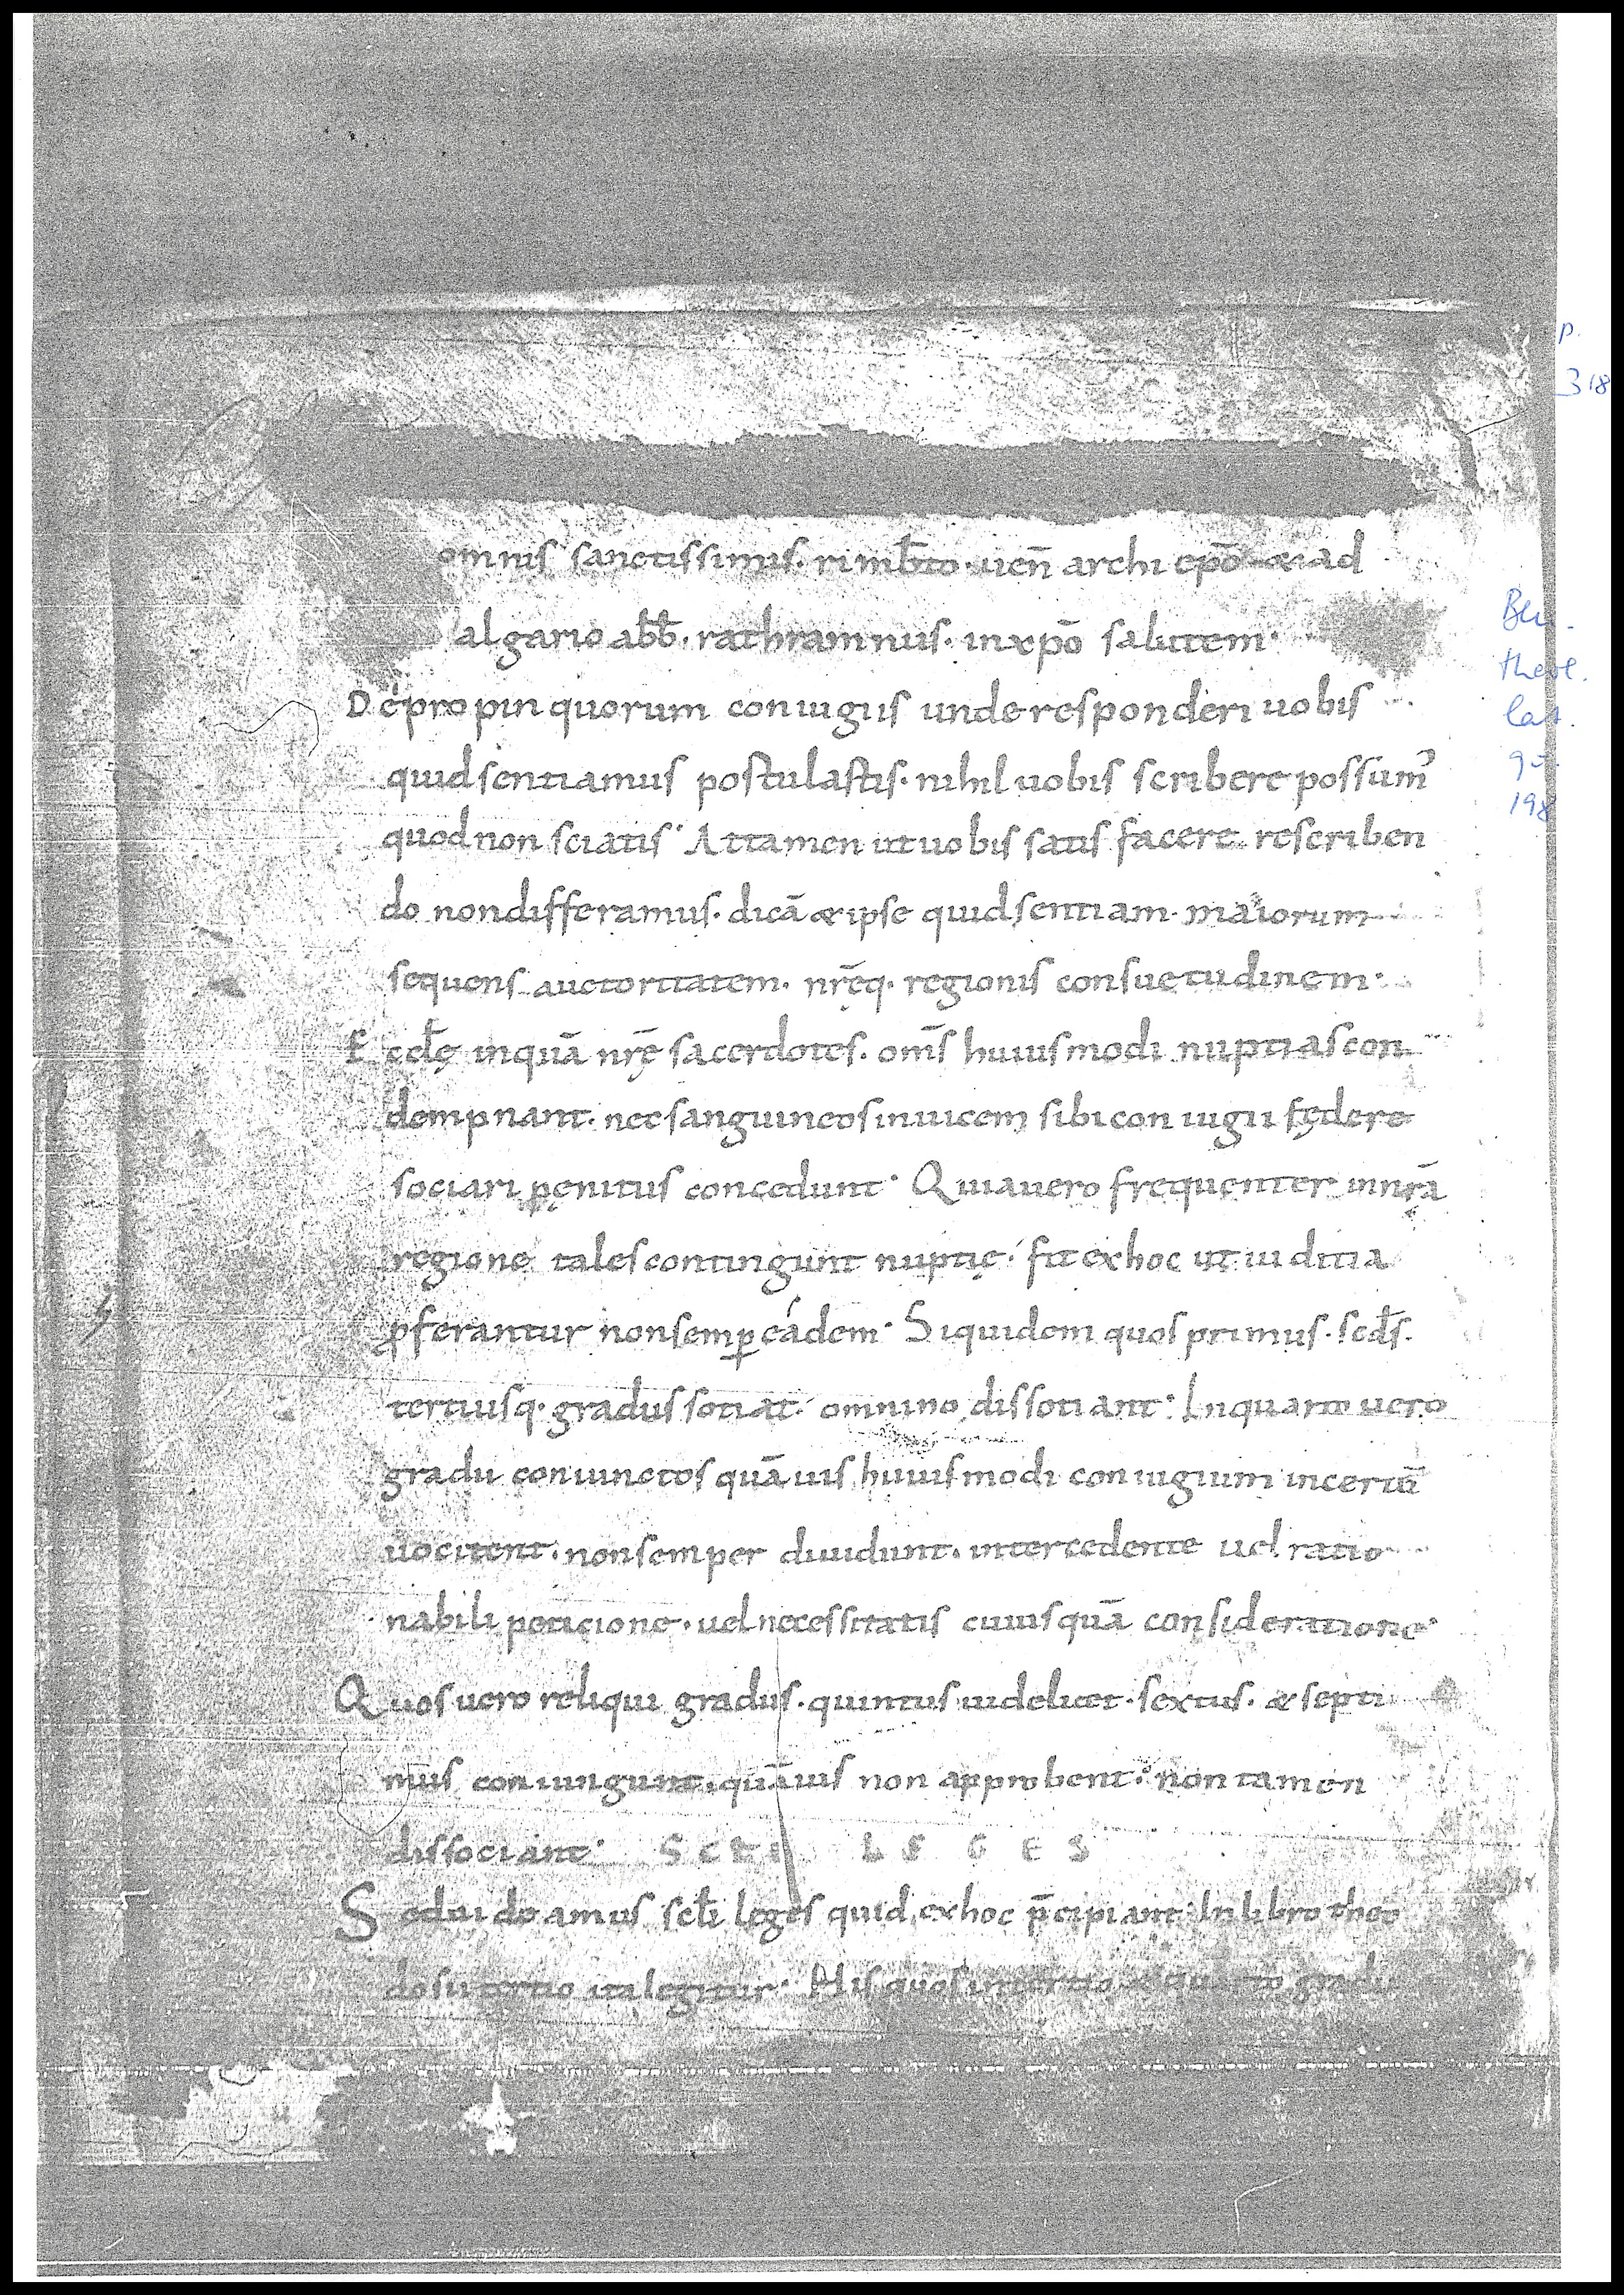 omnis sanctissimis. rimb̄to. uen̄ archi epō & ad
algario ab̄b̄. rathramnus. in xpō salutem.
De propinquorum coniugiis unde responderi uobis
quid sentiamus postulastis. nihil uobis scribere possum'
quod non sciatis. Attamen ut uobis satis facere rescriben
do non differamus. dicā & ipse quid sentiam. maiorum
sequens auctoritatem. nr̄ęq. regionis consuetudinem.
Eccłę inquā nr̄ę sacerdotes. om̄s huiusmodi nuptias con
dempnant. nec sanguineos inuicem sibi coniugii fędere
sociari pęnitus concedunt. Quia uero frequenter in nr̄a
regione tales contingunt nuptię. fit ex hoc ut iuditia
ꝓferantur non semꝑ eadem. Siquidem quos primus. scds̄.
tertiusq. gradus sotiat. omnino dissotiant. In quarto uero
gradu coniunctos quāuis huiusmodi coniugium incertū
uocitent. non semper diuidunt. intercedente uel ratio
nabili peticione. uel necessitatis cuiusquā consideratione.
Quos uero reliqui gradus. quintus uidelicet. sextus. & septi
mus coniungunt. quāuis non approbent. non tamen
dissociant. SCĒI LEGES
Sed uideamus scł̄i leges quid ex hoc p̄cipiant. In libro theo
dosii tertio ita legitur. His quos in tertio & quarto gradu
p.
318
theol.
lat.
198